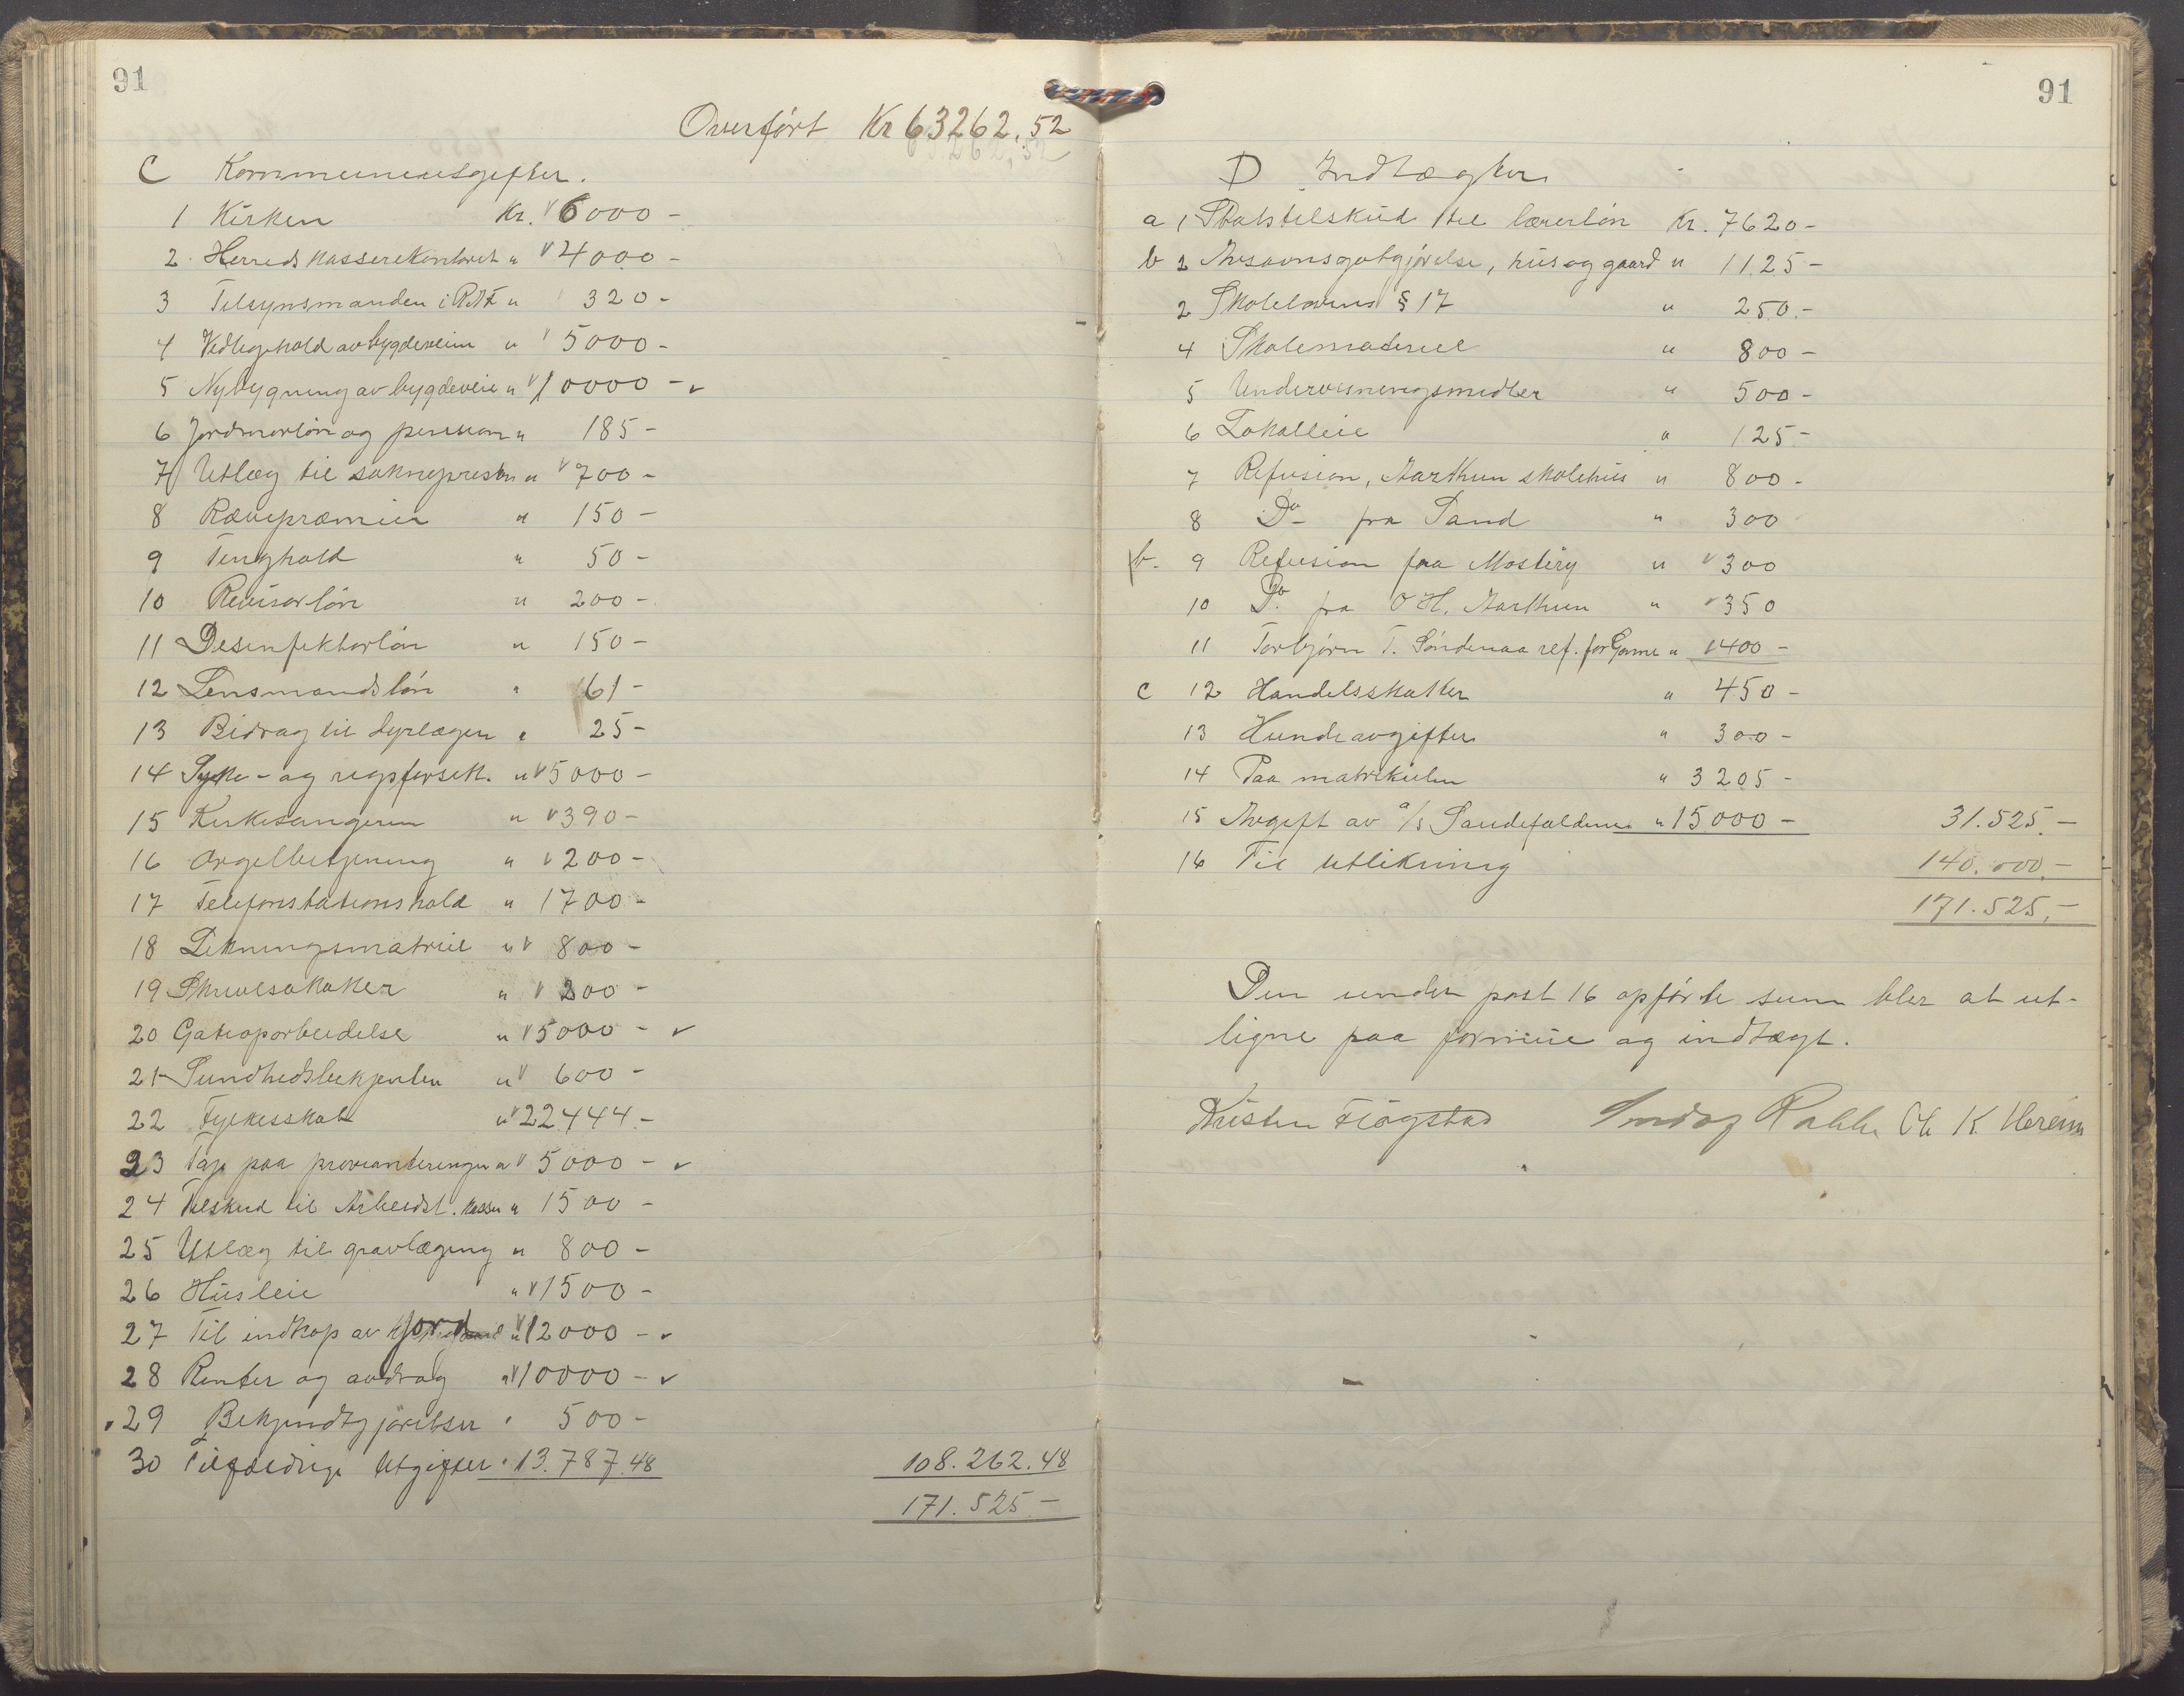 91
Overført Kr 63262,52
C Kommuneutgifter.
1 Kirken Kr. 6000 -
2 Herredskasserekontoret " 4000 -
3 Tilsynsmanden i " 320 -
4 Vedlegehold av bygdeveiene " 5000 -
5 Nybygning av bygdeveie " 10000 -
6 Jordmorløn og pension " 185 -
7 Utlæg til soknepresten " 700 -
8 Rævepræmier " 150 -
9 Tinghold " 50 -
10 Revisorløn " 200 -
11 Desinfektorløn " 150 -
12 Lensmandsløn " 61 -
13 Bidrag til dyrlægen " 25 -
14 Syke- og " 5000 -
15 Kirkesangeren " 390 -
16 Orgelbetjening " 200 -
17 Telefonstationshold " 1700 -
18 Likningsmatriel " 800 -
19 Skrivesaker " 300 -
20 Gateoparbeidelse " 5000 -
21 Sundhedsbetjenten " 600 -
22 Fylkesskat " 22444 -
23 Tap paa provianteringen " 5000 -
24 Tilskud til Arbeidsl. kassen " 1500 -
25 Utlæg til gravlæging " 800 -
26 Husleie " 1500 -
27 Til indkop av jord " 12000 -
28 Renter og avdrag " 10000 -
29 Bekjendtgjørelser " 500 -
30 Tilfældige Utgifter " 13.787.48 108.262.48
171.525 -
91
D Indtægter
a 1 Statstilskud til lærerløn Kr. 7620 -
b 2 Avsavnsgotgjørelse, hus og gaard " 1125 -
2 Skolelovens § 17 " 250 -
4 Skolemateriel " 800 -
5 Undervisningsmidler " 500 -
6 Lokalleie " 125 -
7 Refusion, Aarthun skolehus " 800 -
8 Do - fra Sand " 300
b. 9 Refusion fra Mostøry " 300
10 Do. fra O H. Aarthun " 350
11 Torbjørn T. Søndenaa ref. for " 400 -
c 12 Handelsskatter " 450 -
13 Hundeavgifter " 300 -
14 Paa matrikulen " 3205 -
15 Avgift av a/s Saudefaldene " 15000 - 31.525. -
16 Til utlikning 140.000, -
171.525, -
Den under post 16 opførte sum bler at ut-
ligne paa formue og indtægt.
Kristen Fløgstad Rabbe K. Herein